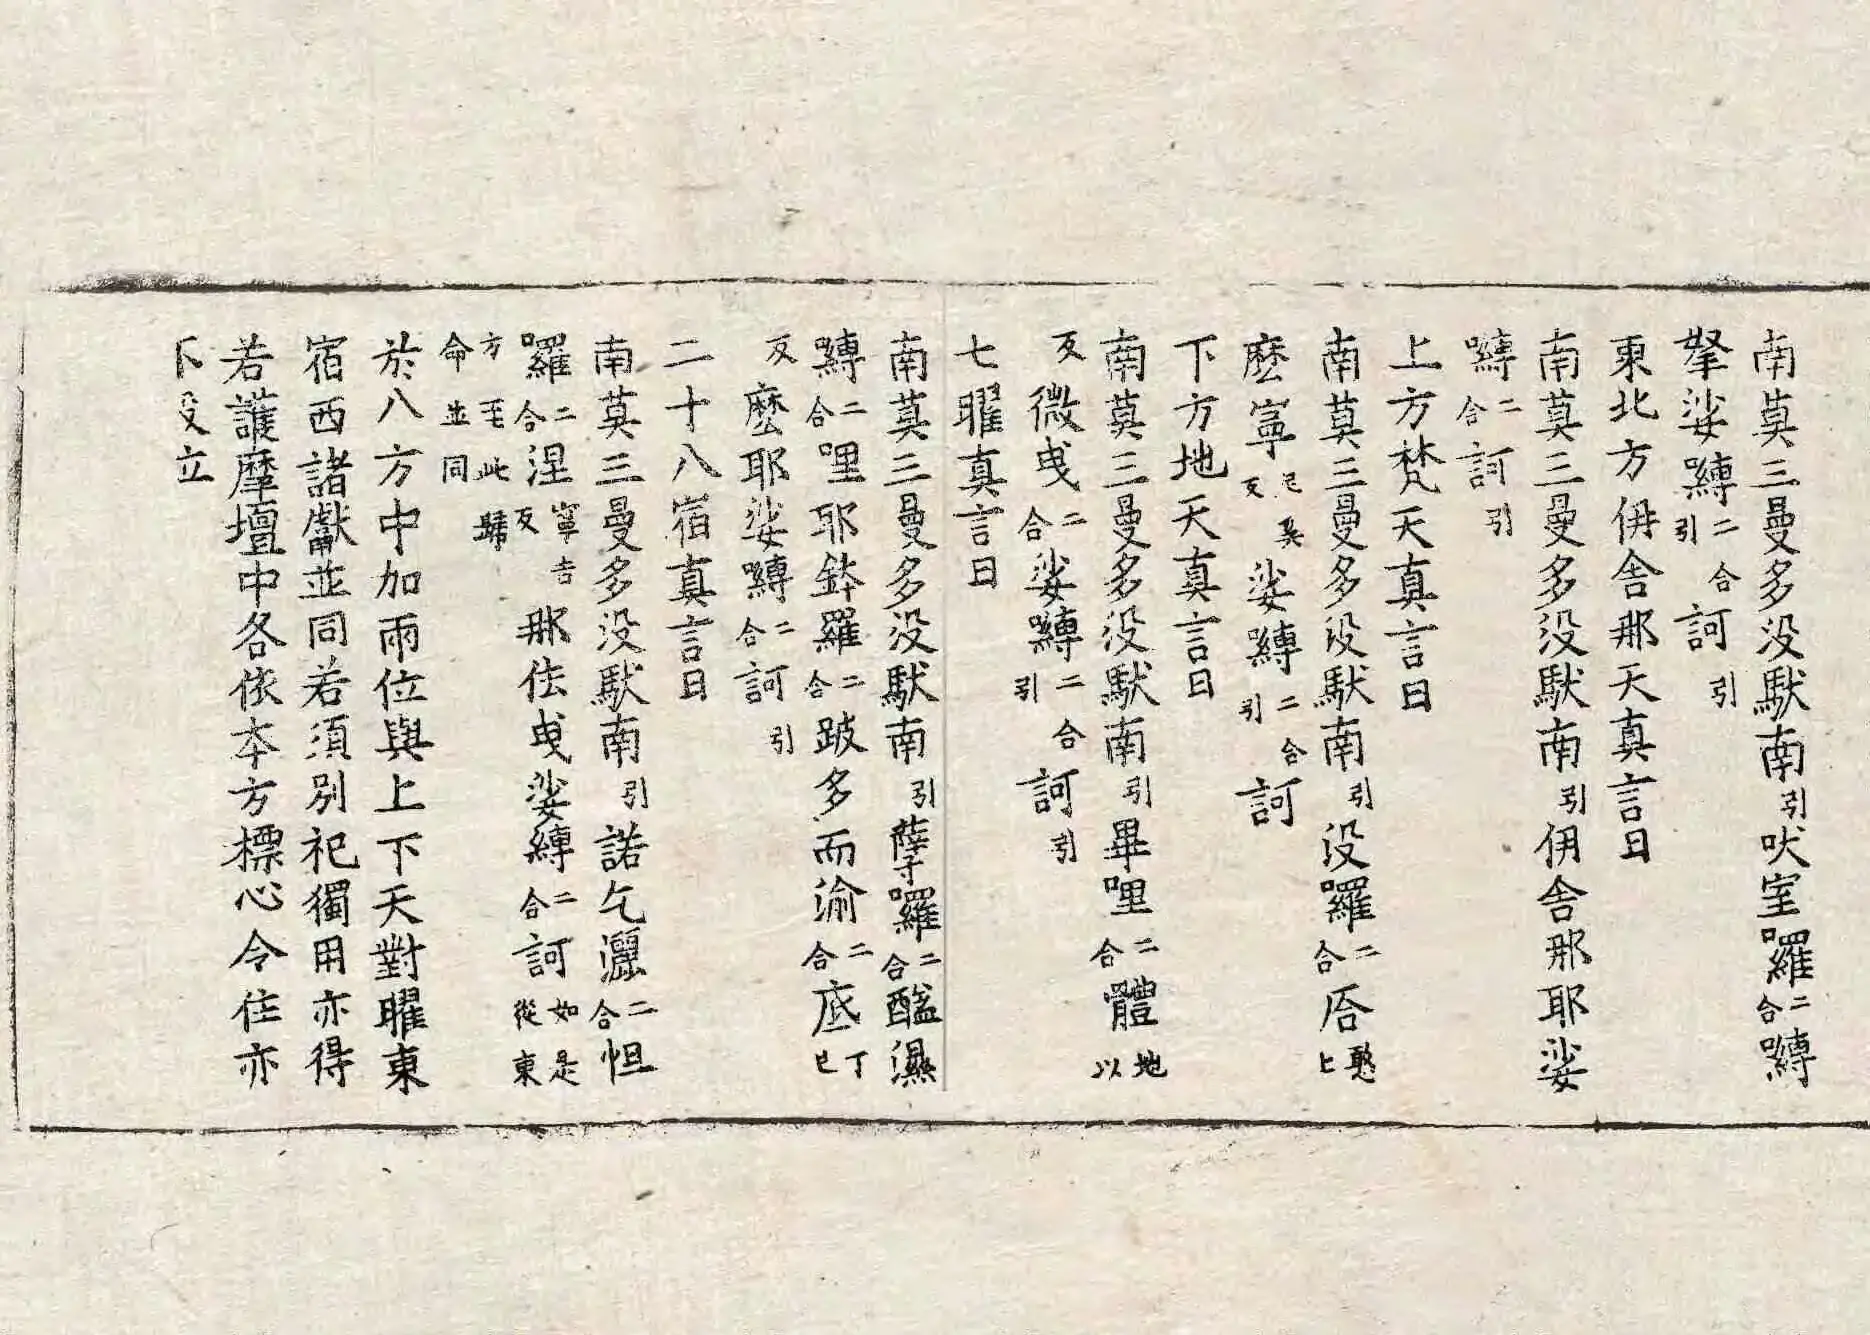 南莫三曼多没馱南引吠室羅二合嚩
拏娑嚩二合引訶引
東北方伊舍那天真言曰
南莫三曼多没馱南引伊舍那耶娑
嚩二合訶引
上方梵天真言曰
南莫三曼多没馱南引没羅二合㕎憨上
麽寧尼奚反娑嚩二合引訶
下方地天真言曰
南莫三曼多没馱南引畢哩二合體地以
反微曳二合娑嚩二合引訶引
七曜真言曰
南莫三曼多没馱南引孽囉二合醯濕
嚩二合哩耶鉢羅二合跛多而渝二合底丁已
反麽耶娑嚩二合訶引
二十八宿真言曰
南莫三曼多没馱南引諾乞灑二合怛
囉二合涅寧吉反那佉曳娑縛二合訶如是從東
方至此歸
命並同
於八方中加兩位與上下天對曜東
宿西諸獻並同若須別祀獨用亦得
若護摩壇中各依本方標心令住亦
不設立